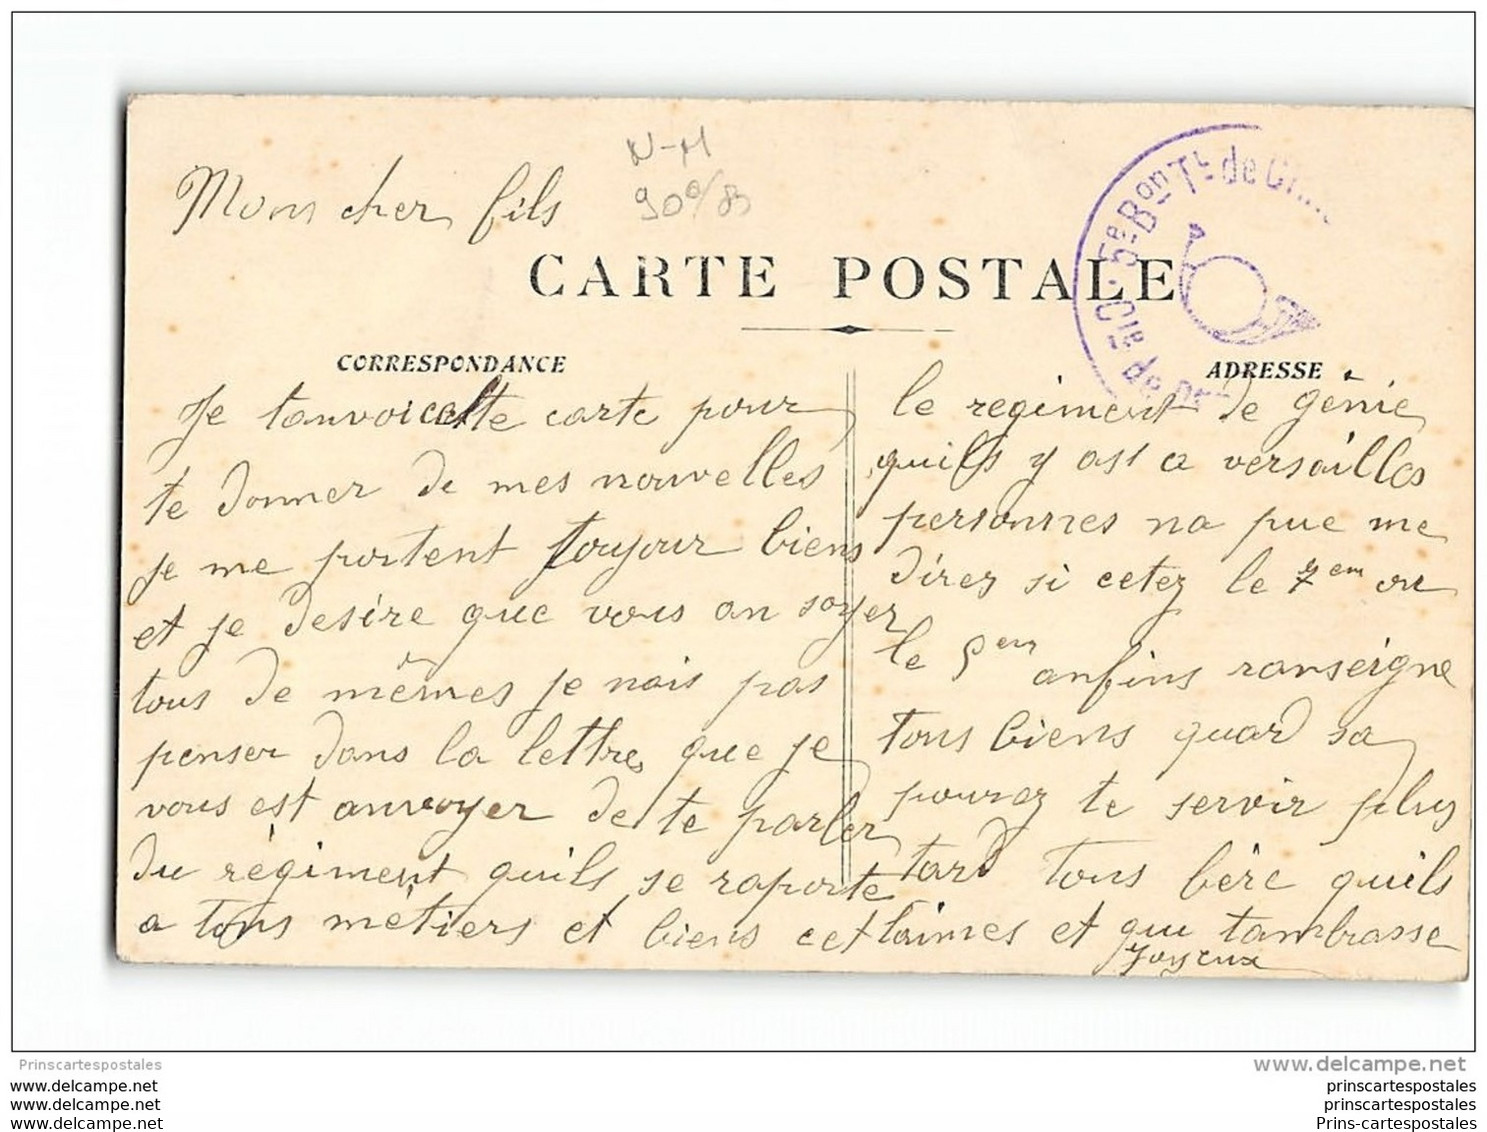 Mons cher fils
N-M
CARTE POSTALE
5e Bon Tl de
Cie de
CORRESPONDANCE
ADRESSE
Je tanvoi cette carte pour
te donner de mes nouvelles
je me portent toujour biens
et je desire que vous an soyer
tous de mêmes je nais pas
penser dans la lettre que je
vous est anvoyer de te parler
du régiment quils se raporte
a tons métiers et biens cet
le regiment de génie
quils y ast a versailles
personnes na pue me
direz si cetez le 7em ou
le 5em anfins ranseigne
tous biens quard sa
pourez te servir plus
tard tons bère quils
taimes et qui tambrasse
Joyeux
Prinscartespostales
www.delcampe.net
www.delcampe.net
www.delcampe.net
www.delcampe.net
prinscartespostales
prins-cartespostales
Prins-cartespostales